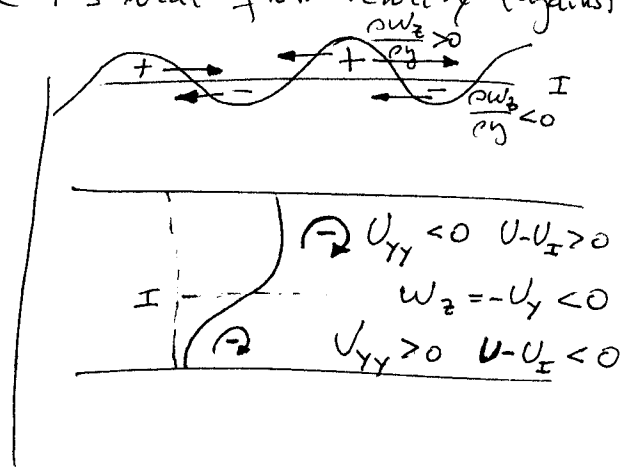 ∂W_z/∂y > 0
+ + I
- -
∂W_z/∂y < 0
(-) U_yy < 0 U-U_I > 0
I W_z = -U_y < 0
(-) U_yy > 0 U-U_I < 0